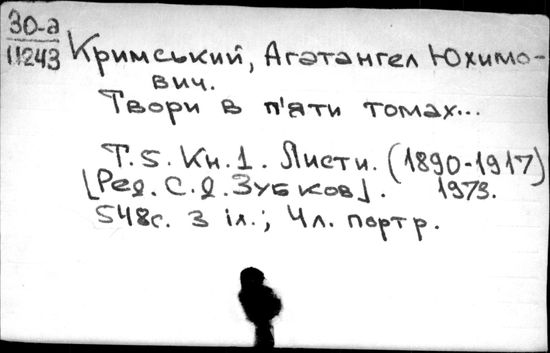 30-а
11243
Кримський, Агатангел Юхимо-
вич.
Твори в п'яти томах...
Т.5. Кн.1. Листи. (1890-1917)
[Ред. С.Д. Зубков]. 1973.
548с. з іл.; 4л. портр.